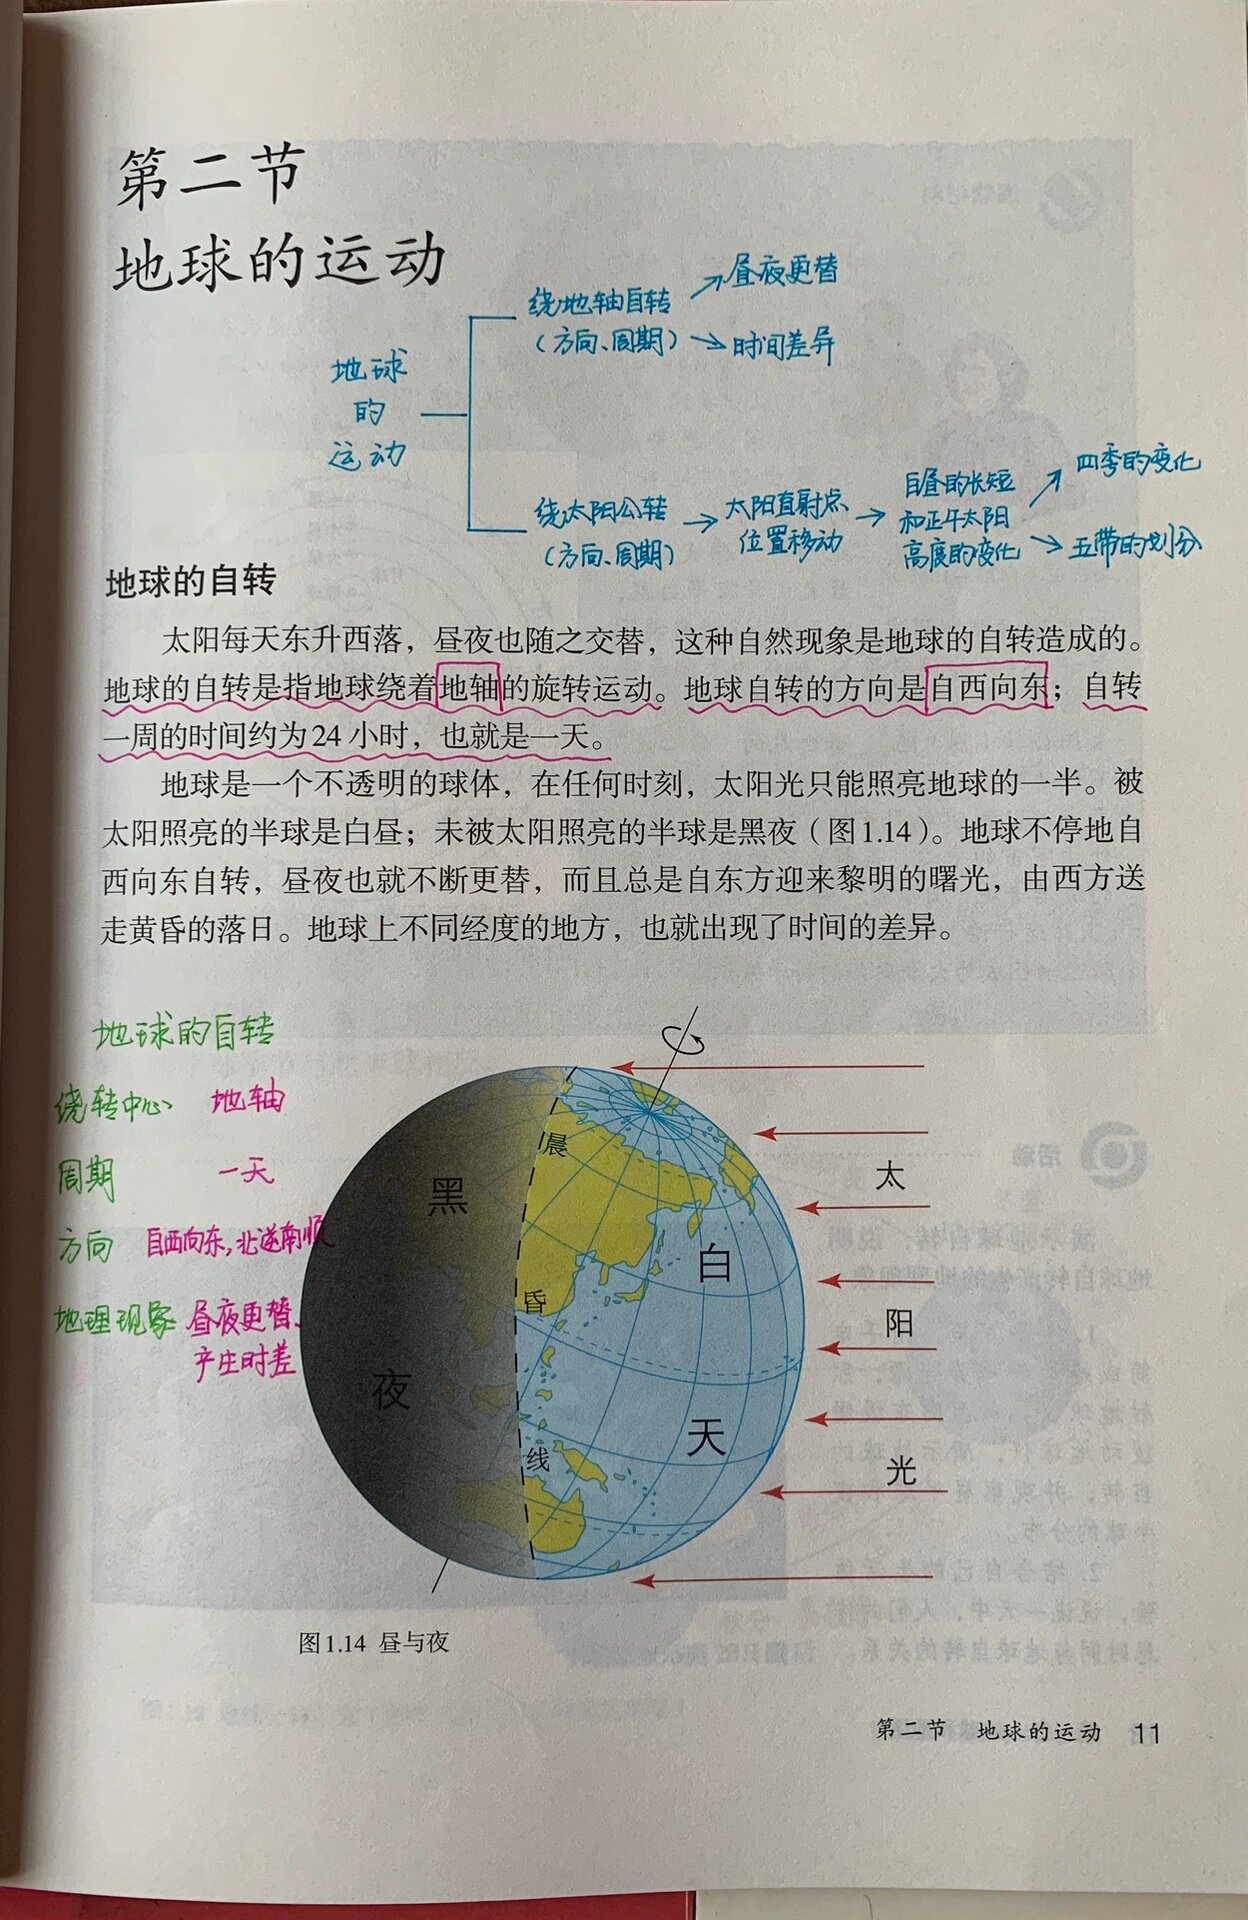 第二节
地球的运动
昼夜更替
绕地轴自转
(方向、周期)
时间差异
地球
的
运动
四季的变化
白昼的长短
绕太阳公转
太阳直射点
和正午太阳
(方向、周期)
位置移动
高度的变化
五带的划分
地球的自转
太阳每天东升西落，昼夜也随之交替，这种自然现象是地球的自转造成的。
地球的自转是指地球绕着地轴的旋转运动。地球自转的方向是自西向东；自转
一周的时间约为24小时，也就是一天。
地球是一个不透明的球体，在任何时刻，太阳光只能照亮地球的一半。被
太阳照亮的半球是白昼；未被太阳照亮的半球是黑夜（图1.14）。地球不停地自
西向东自转，昼夜也就不断更替，而且总是自东方迎来黎明的曙光，由西方送
走黄昏的落日。地球上不同经度的地方，也就出现了时间的差异。
地球的自转
绕转中心 地轴
周期 一天
方向 自西向东，北逆南顺
地理现象 昼夜更替、
产生时差
黑
夜
晨
昏
线
白
天
太
阳
光
图1.14 昼与夜
第二节 地球的运动 11